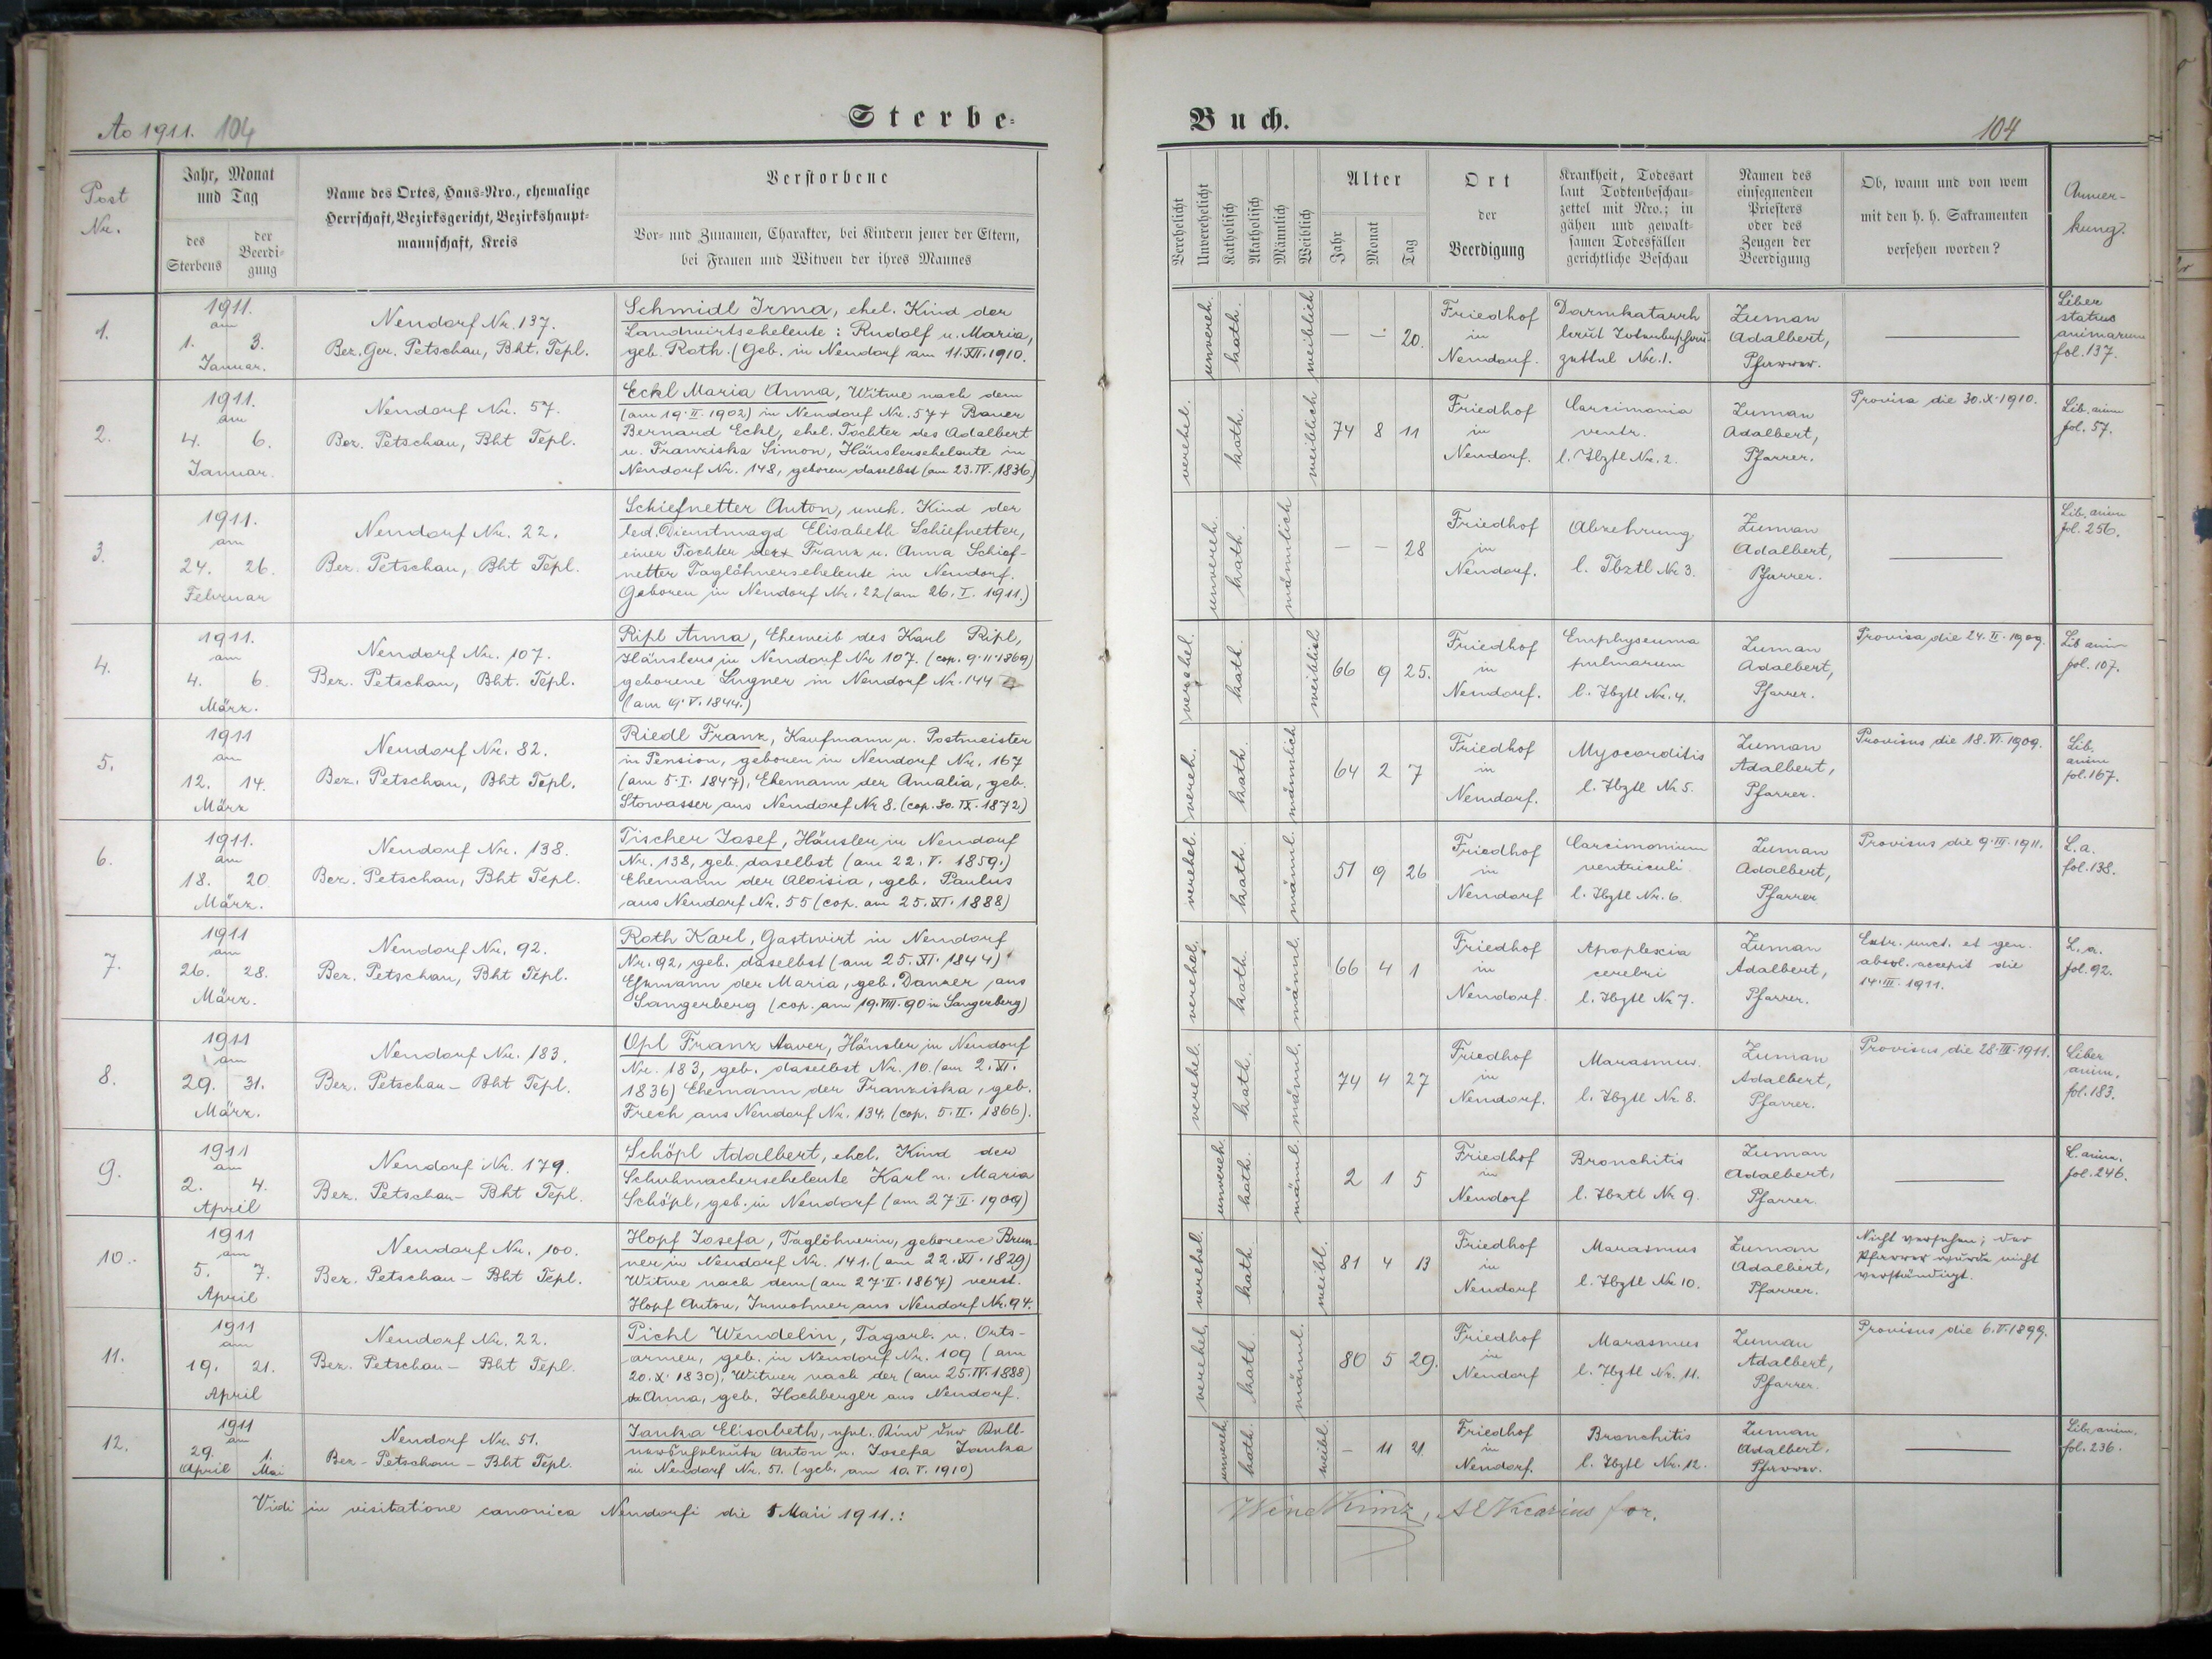 Ao 1911. 104
Sterbe-
Post
Nr.
Jahr, Monat
und Tag
des
Sterbens
der
Beerdi-
gung
Name des Ortes, Haus-Nro., ehemalige
Herrschaft, Bezirksgericht, Bezirkshaupt-
mannschaft, Kreis
Verstorbene
Vor- und Zunamen, Charakter, bei Kindern jener der Eltern,
bei Frauen und Witwen der ihres Mannes
1.
1911.
am
1. 3.
Januar.
Neudorf Nr. 137.
Bez. Ger. Petschau, Bht. Tepl.
Schmidl Irma, ehel. Kind der
Landwirtseheleute: Rudolf u. Maria,
geb. Roth. (Geb. in Neudorf am 11.XII.1910.
2.
1911.
am
4. 6.
Januar.
Neudorf Nr. 57.
Bez. Petschau, Bht Tepl.
Eckl Maria Anna, Witwe nach dem
(am 19.II.1902) in Neudorf Nr. 57 + Bauer
Bernard Eckl, ehel. Tochter des Adalbert
u. Franziska Simon, Häuslerseheleute in
Neudorf Nr. 148, geboren daselbst (am 23.IV.1836)
3.
1911.
am
24. 26.
Februar
Neudorf Nr. 22.
Bez. Petschau, Bht Tepl.
Schiefnetter Anton, uneh. Kind der
led. Dienstmagd Elisabeth Schiefnetter,
einer Tochter der Franz u. Anna Schief-
netter Taglöhnerseheleute in Neudorf.
Geboren in Neudorf Nr. 22 (am 26. I. 1911.)
4.
1911.
am
4. 6.
März.
Neudorf Nr. 107.
Bez. Petschau, Bht. Tepl.
Ripl Anna, Eheweib des Karl Ripl,
Häuslers in Neudorf Nr 107. (cop. 9.II.1869)
geborene Lugner in Neudorf Nr. 144
(am 9.V.1844.)
5.
1911
am
12. 14.
März
Neudorf Nr. 82.
Bez. Petschau, Bht Tepl.
Riedl Franz, Kaufmann u. Postmeister
in Pension, geboren in Neudorf Nr. 167
(am 5.I.1847), Ehemann der Amalia, geb.
Stowasser aus Neudorf Nr 8. (cop. 30.IX.1872)
6.
1911.
am
18. 20
März.
Neudorf Nr. 138.
Bez. Petschau, Bht Tepl.
Tischer Josef, Häusler in Neudorf
Nr. 138, geb. daselbst (am 22. V. 1859.)
Ehemann der Aloisia, geb. Paulus
aus Neudorf Nr. 55 (cop. am 25.XI.1888)
7.
1911
am
26. 28.
März.
Neudorf Nr. 92.
Bez. Petschau, Bht Tepl.
Roth Karl, Gastwirt in Neudorf
Nr. 92, geb. daselbst (am 25.XI.1844)
Ehemann der Maria, geb. Danzer aus
Sangerberg (cop. am 19.VIII.90 in Sangerberg)
8.
1911
am
29. 31.
März.
Neudorf Nr. 183.
Bez. Petschau - Bht Tepl.
Opl Franz Xaver, Häusler in Neudorf
Nr. 183, geb. daselbst Nr. 10. (am 2.XI.
1836) Ehemann der Franziska, geb.
Frech aus Neudorf Nr. 134. (cop. 5.II.1866).
9.
1911
am
2. 4.
April
Neudorf Nr. 179.
Bez. Petschau - Bht Tepl.
Schöpl Adalbert, ehel. Kind der
Schuhmacherseheleute Karl u. Maria
Schöpl, geb. in Neudorf (am 27.II.1909)
10.
1911
am
5. 7.
April
Neudorf Nr. 100.
Bez. Petschau - Bht Tepl.
Hopf Josefa, Taglöhnerin, geborene Brun-
ner in Neudorf Nr. 141. (am 22.XI.1829)
Witwe nach dem (am 27.II.1867) verst.
Hopf Anton, Inwohner aus Neudorf Nr. 94.
11.
1911
am
19. 21.
April
Neudorf Nr. 22.
Bez. Petschau - Bht Tepl.
Pichl Wendelin, Tagarb. u. Orts-
armer, geb. in Neudorf Nr. 109 (am
20.X.1830), Witwer nach der (am 25.IV.1888)
Anna, geb. Hochberger aus Neudorf.
12.
1911
am
29. 1.
April Mai
Neudorf Nr. 51.
Bez - Petschau - Bht Tepl.
Janka Elisabeth, ehel. Kind der
Anton u. Josefa Janka
in Neudorf Nr. 51. (geb. am 10.V.1910)
Vidi in visitatione canonica Neudorfi die 5 Maii 1911.:
Buch.
104
Verehelicht
Unverehelicht
Katholisch
Akatholisch
Männlich
Weiblich
Alter
Jahr
Monat
Tag
Ort
der
Beerdigung
Krankheit, Todesart
laut Todtenbeschau-
zettel mit Nro.; in
gähen und gewalt-
samen Todesfällen
gerichtliche Beschau
Namen des
einsegnenden
Priesters
oder des
Zeugen der
Beerdigung
Ob, wann und von wem
mit den h. h. Sakramenten
versehen worden?
Anmer-
kung.
unvereh.
kath.
weiblich
— — 20.
Friedhof
in
Neudorf.
Darmkatarrh
laut Totenbeschau-
zettel Nr. 1.
Zuman
Adalbert,
Pfarrer.
—
Liber
status
animarum
fol. 137.
verehel.
kath.
weiblich
74 8 11
Friedhof
in
Neudorf.
Carcimonia
ventr.
l. Tbztl Nr. 2.
Zuman
Adalbert,
Pfarrer.
Provisa die 30.X.1910.
Lib. anim
fol. 57.
unvereh.
kath.
männlich
— — 28
Friedhof
in
Neudorf.
Abzehrung
l. Tbztl Nr 3.
Zuman
Adalbert,
Pfarrer.
—
Lib. anim
fol. 256.
verehel.
kath.
weiblich
66 9 25.
Friedhof
in
Neudorf.
Emphysema
pulmarum
l. Tbztl Nr. 4.
Zuman
Adalbert,
Pfarrer.
Provisa die 24.II.1909.
Lib anim
fol. 107.
vereh.
kath.
männlich
64 2 7
Friedhof
in
Neudorf.
Myocarditis
l. Tbztl Nr 5.
Zuman
Adalbert,
Pfarrer.
Provisus die 18.VI.1909.
Lib.
anim
fol. 167.
verehel.
kath.
männl.
51 9 26
Friedhof
in
Neudorf
Carcimonium
ventriculi
l. Tbztl Nr. 6.
Zuman
Adalbert,
Pfarrer
Provisus die 9.III.1911.
L. a.
fol. 138.
verehel.
kath.
männl.
66 4 1
Friedhof
in
Neudorf.
Apoplexia
cerebri
l. Tbztl Nr 7.
Zuman
Adalbert,
Pfarrer.
Extr. unct. et gen.
absol. accepit die
14.III.1911.
L. a.
fol. 92.
verehel.
kath.
männl.
74 4 27
Friedhof
in
Neudorf.
Marasmus.
l. Tbztl Nr 8.
Zuman
Adalbert,
Pfarrer.
Provisus die 28.III.1911.
Liber
anim.
fol. 183.
unvereh.
kath.
männl.
2 1 5
Friedhof
in
Neudorf
Bronchitis
l. Tbztl Nr 9.
Zuman
Adalbert,
Pfarrer.
—
L. anim.
fol. 246.
verehel.
kath.
weibl.
81 4 13
Friedhof
in
Neudorf
Marasmus
l. Tbztl Nr 10.
Zuman
Adalbert,
Pfarrer.
Nicht versehen; der
Pfarrer wurde nicht
verständigt.
verehel.
kath.
männl.
80 5 29.
Friedhof
in
Neudorf
Marasmus
l. Tbztl Nr. 11.
Zuman
Adalbert,
Pfarrer.
Provisus die 6.V.1899.
unvereh.
kath.
weibl.
— 11 21
Friedhof
in
Neudorf.
Bronchitis
l. Tbztl Nr. 12.
Zuman
Adalbert.
Pfarrer.
—
Lib. anim.
fol. 236.
for.